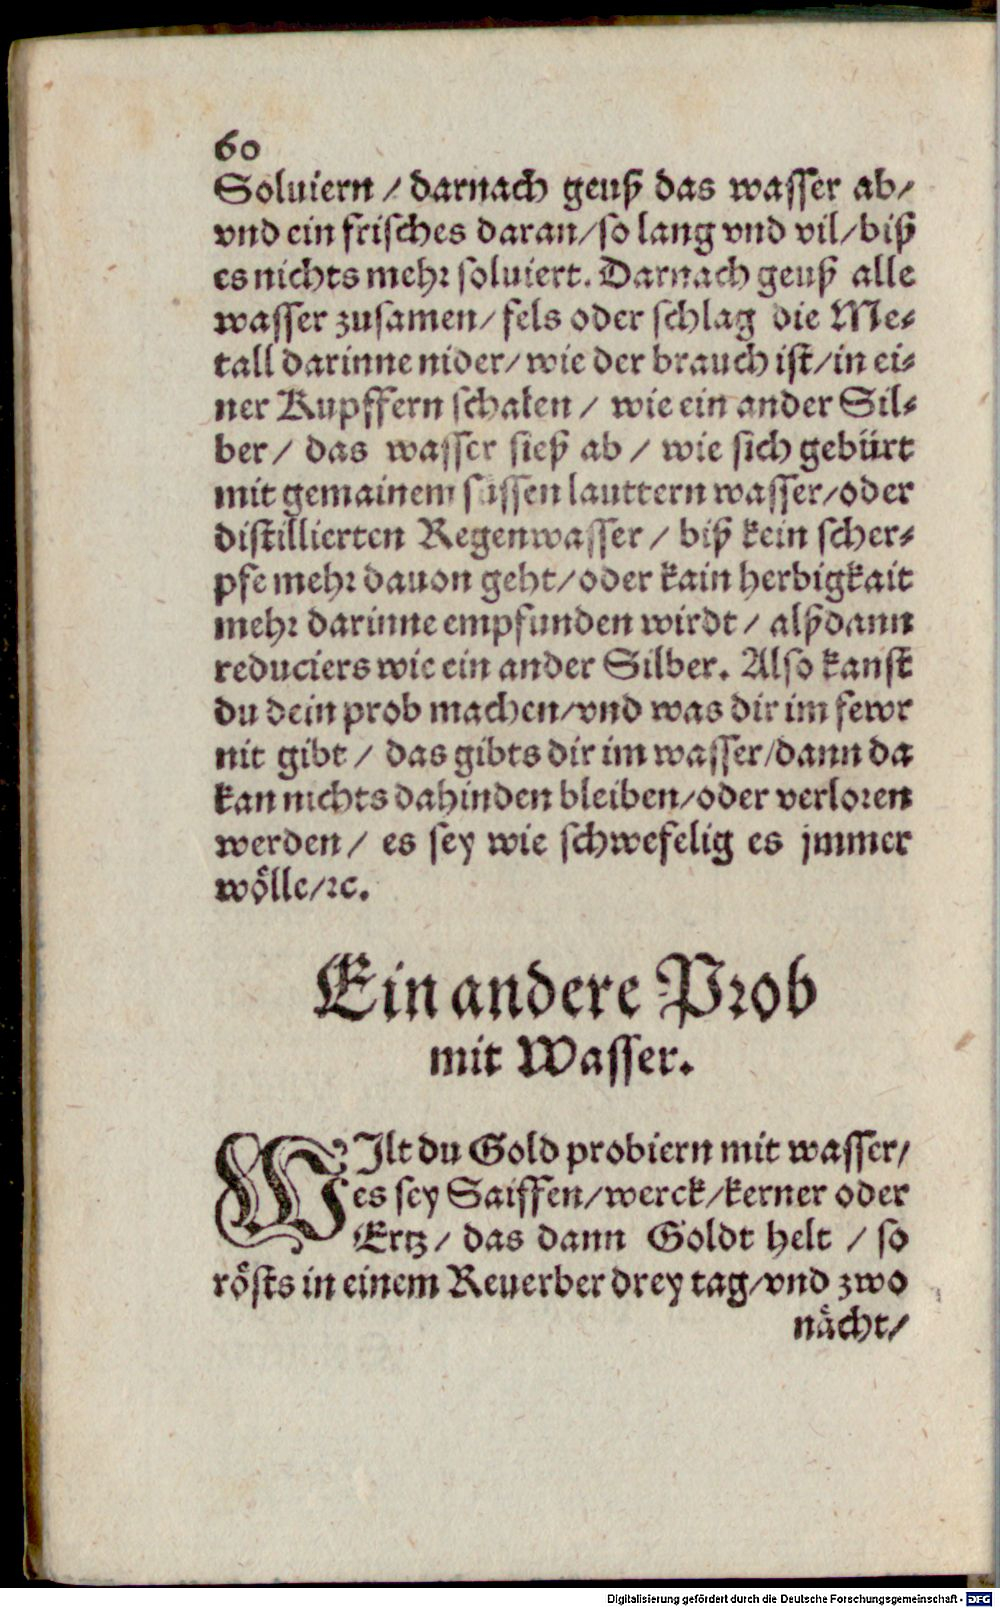 60
Soluiern / darnach geuß das wasser ab/
vnd ein frisches daran/so lang vnd vil/biß
es nichts mehr soluiert. Darnach geuß alle
wasser zusamen/ fels oder schlag die Me-
tall darinne nider/ wie der brauch ist/in ei-
ner Kupffern schalen / wie ein ander Sil-
ber / das wasser sieß ab / wie sich gebürt
mit gemainem süssen lauttern wasser/oder
distillierten Regenwasser / biß kein scher-
pfe mehr dauon geht/oder kain herbigkait
mehr darinne empfunden wirdt / alßdann
reduciers wie ein ander Silber. Also kanst
du dein prob machen/vnd was dir im fewr
nit gibt / das gibts dir im wasser/dann da
kan nichts dahinden bleiben/oder verloren
werden / es sey wie schwefelig es jmmer
wölle/ꝛc.
Ein andere Prob
mit Wasser.
WIlt du Gold probiern mit wasser/
es sey Saiffen/werck/kerner oder
Ertz / das dann Goldt helt / so
rösts in einem Reuerber drey tag/vnd zwo
nächt/
Digitalisierung gefördert durch die Deutsche Forschungsgemeinschaft - DFG